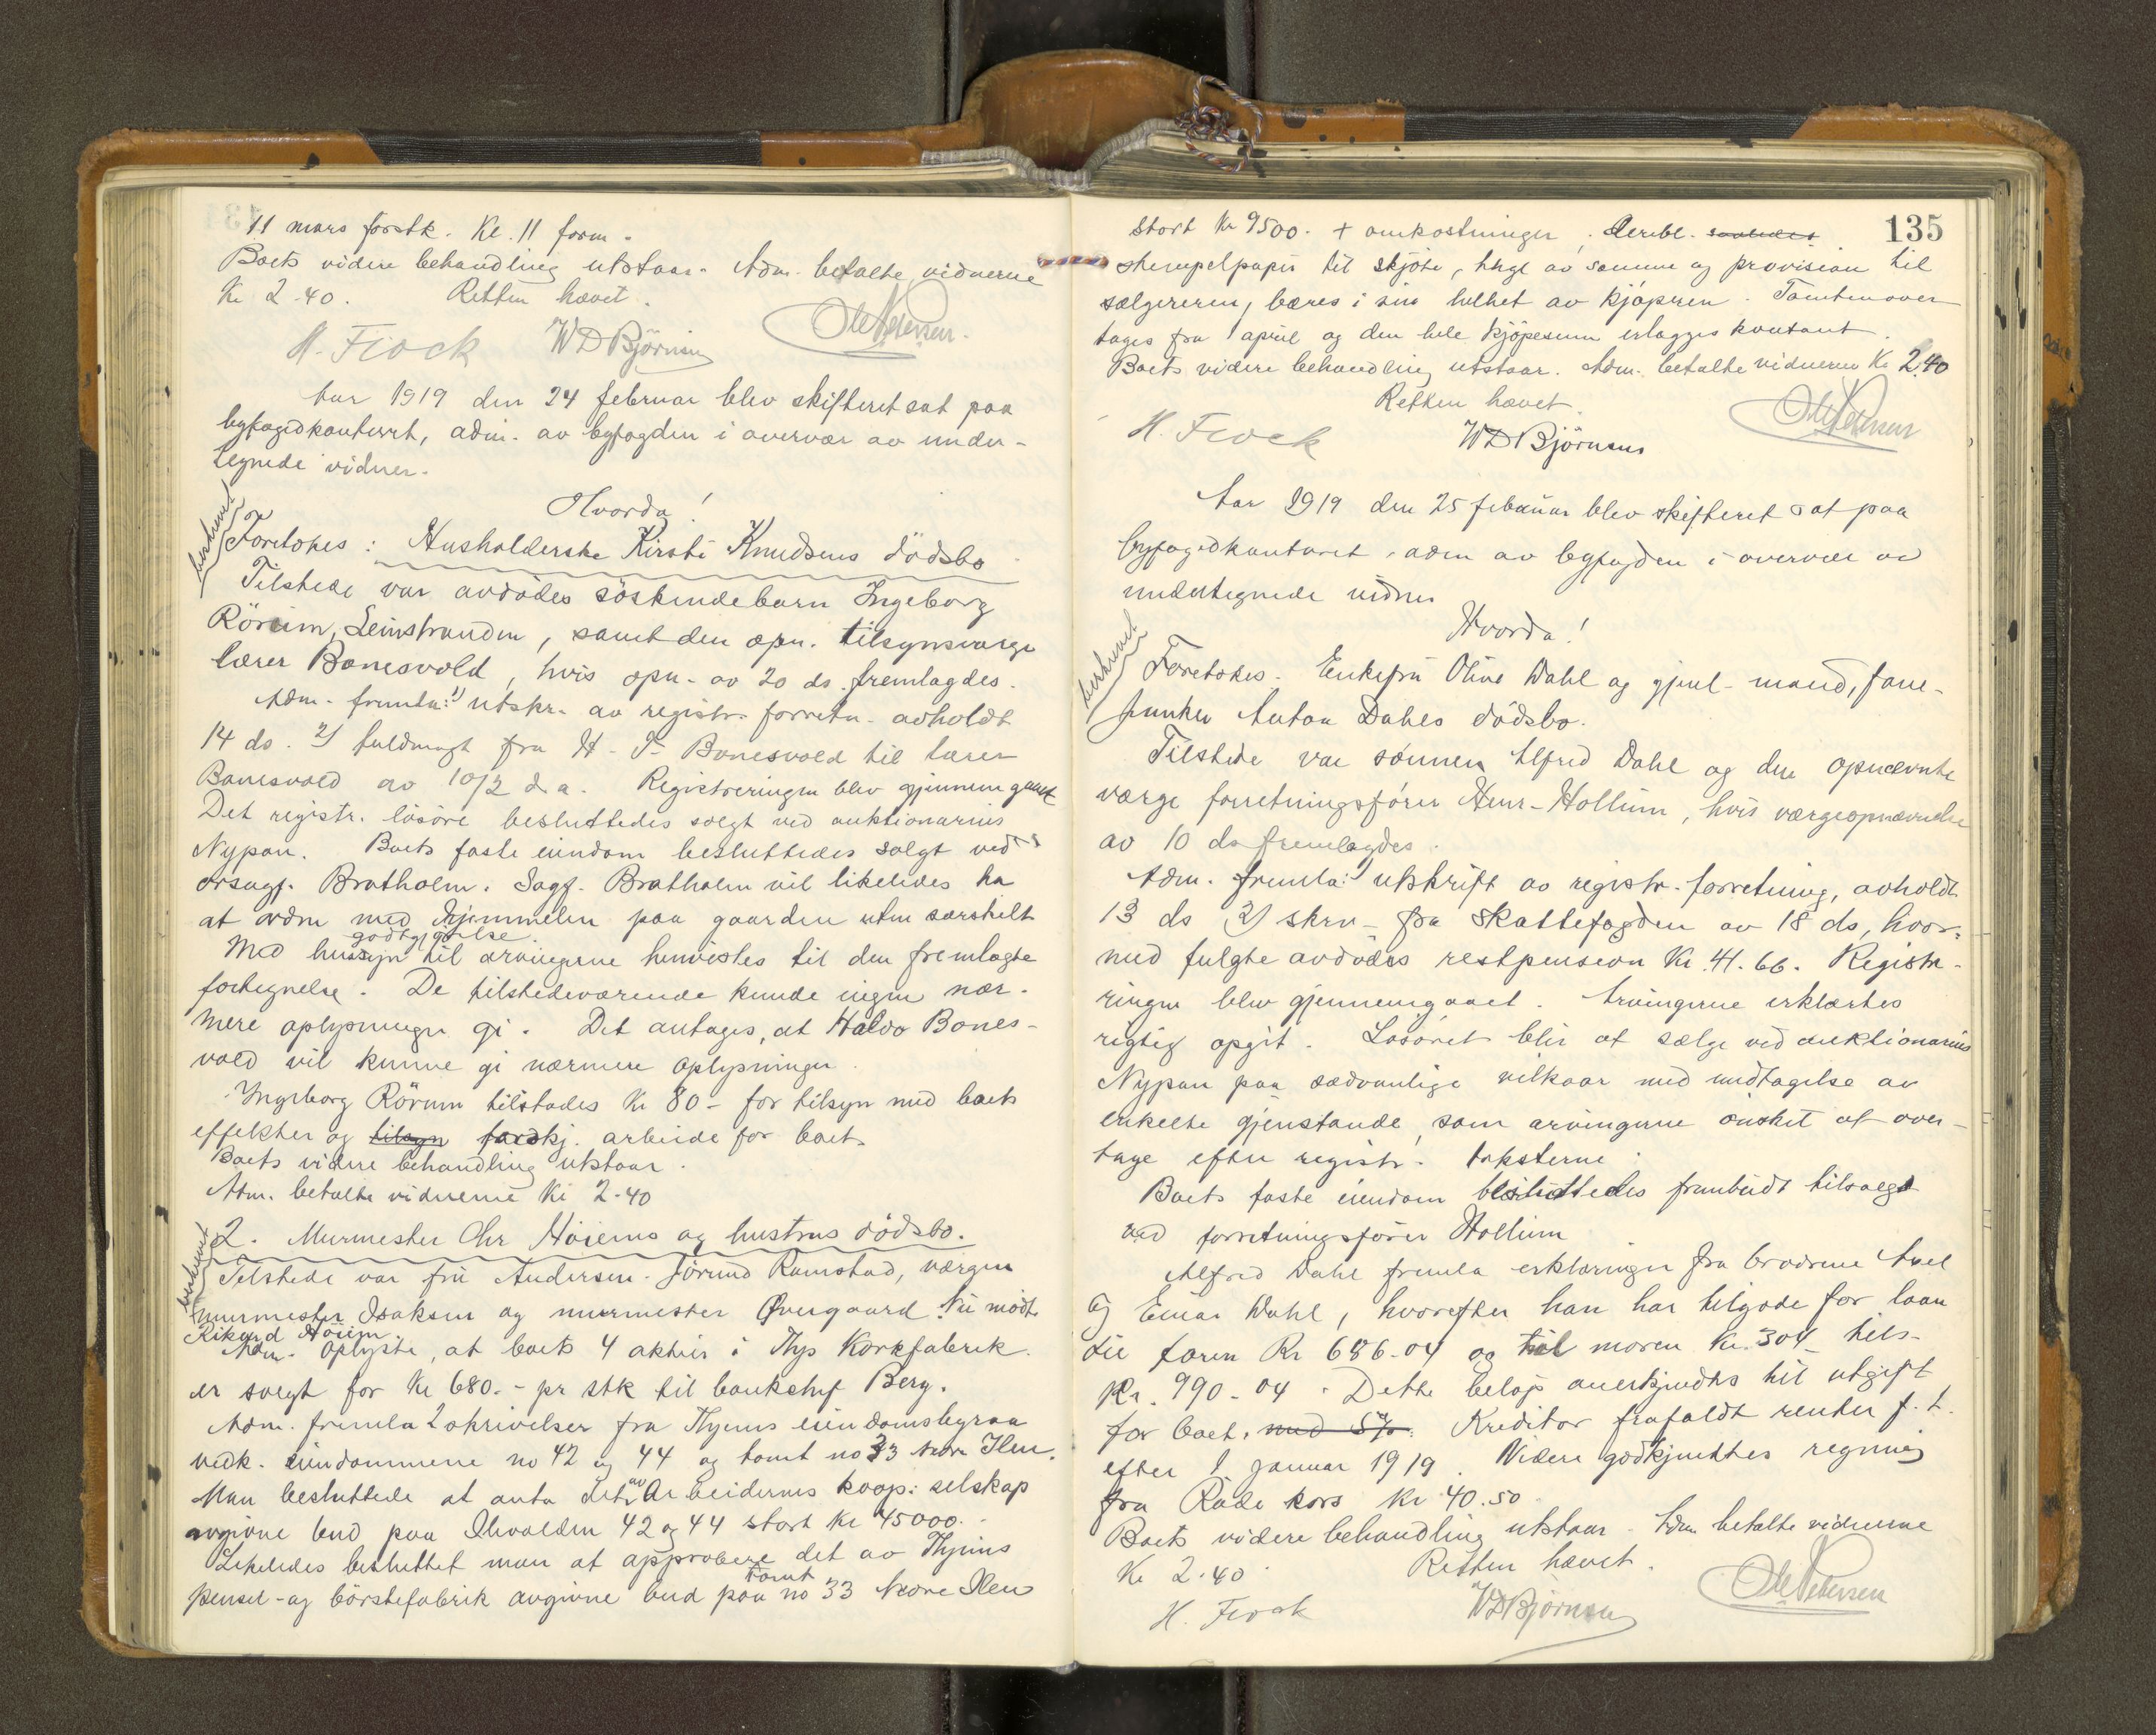 11 mars förstk. Kl. 11 form.
Boets videre behandling utstaar. Adm. betalte vidnerne
Kr 2.40. Retten hævet.
H. Flock WD Björnsen Ole Petersen.
Aar 1919 den 24 februar blev skifteret sat paa
byfogedkontoret, adm. av byfogden i overvær av under-
tegnede vidner.
Hvorda!
beskrevet
Foretokes: Husholderske Kirsti Knudsens dödsbo
Tilstede var avdödes söskendebarn Ingeborg
Rörum, Leinstranden, samt den opn. tilsynsværge
lærer Bonesvold, hvis opn. av 20 ds. fremlagdes.
Adm. fremla: 1) utskr. av registr. forretn. avholdt
14 ds. 2) fuldmagt fra H. T. Bonesvold til lærer
Bonesvold av 10/2 d.a. Registreringen blev gjennemgaaet
Det registr. lösöre besluttedes solgt ved auktionarius
Nypan. Boets faste eiendom besluttedes solgt ved
orsagf. Bratholm. Sagf. Bratholm vil likeledes ha
at ordne med hjemmelen paa gaarden uten særskilt
godtgjörelse
Med hensyn til arvingerne henvistes til den fremlagte
fortegnelse. De tilstedeværende kunde ingen nær-
mere oplysninger gi. Det antages, at Haldo Bones-
vold vil kunne gi nærmere oplysninger.
Ingeborg Rörum tilstodes Kr 80- for tilsyn med boets
effekter og tilsyn forskj. arbeide for boet.
Boets videre behandling utstaar.
Adm. betalte vidnerne Kr 2.40
beskrevet
2. Murmester Chr Höiems og hustrus dödsbo.
Tilstede var fru Andersen. Jörund Ramstad, værgen
murmester Isaksen og murmester Övergaard. Nu mödte
Rikard Höiem.
Adm. oplyste, at boets 4 aktier i Thjs Korkfabrik
er solgt for Kr 680.- pr stk til bankchef Berg.
Adm. fremla 2 skrivelser fra Thjems eiendomsbyraa
vedk. eiendommene no 42 og 44 og tomt no 33 Nedre Ilen.
Man besluttede at anta det av Arbeidernes koop: selskap
avgivne bud paa Ilevolden 42 og 44 stort Kr 45000.-
Likeledes besluttet man at approbere det av Thjems
pensel- og börstefabrik avgivne bud paa tomt no 33 Nedre Ilen
135
stort Kr 9500. + omkostninger, deribl. saaledes
stempelpapir til skjöte, tingl av samme og provision til
sælgereren, bæres i sin helhet av kjöperen. Tomten over
tages fra 1 april og den hele kjöpesum erlægges kontant.
Boets videre behandling utstaar. Adm. betalte vidnerne Kr 2.40
Retten hævet.
H. Flock WD Björnsen Ole Petersen
Aar 1919 den 25 februar blev skifteret sat paa
byfogedkontoret, adm av byfogden i overvær av
undertegnede vidner
Hvorda!
beskrevet
Foretokes. Enkefru Oline Dahl og gjenl. mand, fane-
junker Anton Dahls dödsbo.
Tilstede var sönnen Alfred Dahl og den opnævnte
værge forretningsförer Henr. Hollum, hvis værgeopnævnelse
av 10 ds fremlagdes.
Adm. fremla: 1) utskrift av registr. forretning, avholdt
13 ds 2) skrv. fra skattefogden av 18 ds, hvor-
med fulgte avdödes restpension Kr. 41.66. Registre-
ringen blev gjennemgaaet. Arvingerne erklærtes
rigtig opgit. Lösöret blir at sælge ved auktionarius
Nypan paa sædvanlige vilkaar med undtagelse av
enkelte gjenstande, som arvingerne önsket at over-
tage efter registr. taksterne.
Boets faste eiendom besluttedes frembudt tilsalgs
ved forretningsförer Hollum
Alfred Dahl fremla erklæringer fra brödrene Axel
og Einar Dahl, hvorefter han har tilgode for laan
til faren Kr 686.04 og til moren Kr. 304 tils-
Kr. 990.04. Dette belöp anerkjendtes til utgift
for boet, med 5%. Kreditor frafaldt renter f. t.
efter 1 januar 1919. Videre godkjendtes regning
fra Röde kors Kr 40.50
Boets videre behandling utstaar. Adm. betalte vidnerne
Kr 2.40. Retten hævet.
H. Flock WD Björnsen Ole Petersen